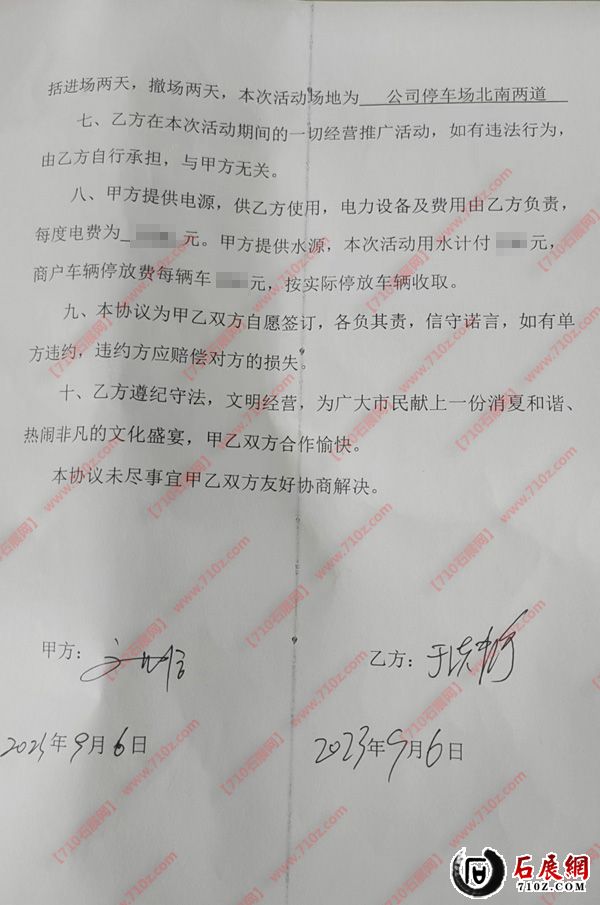 括进场两天，撤场两天，本次活动场地为 公司停车场北南两道
七、乙方在本次活动期间的一切经营推广活动，如有违法行为，
由乙方自行承担，与甲方无关。
八、甲方提供电源，供乙方使用，电力设备及费用由乙方负责，
每度电费为 元。甲方提供水源，本次活动用水计付 元，
商户车辆停放费每辆车 元，按实际停放车辆收取。
九、本协议为甲乙双方自愿签订，各负其责，信守诺言，如有单
方违约，违约方应赔偿对方的损失。
十、乙方遵纪守法，文明经营，为广大市民献上一份消夏和谐、
热闹非凡的文化盛宴，甲乙双方合作愉快。
本协议未尽事宜甲乙双方友好协商解决。
甲方： 乙方：
2023年9月6日 2023年9月6日
【710石展网】 www.710z.com
石展網
710Z.COM